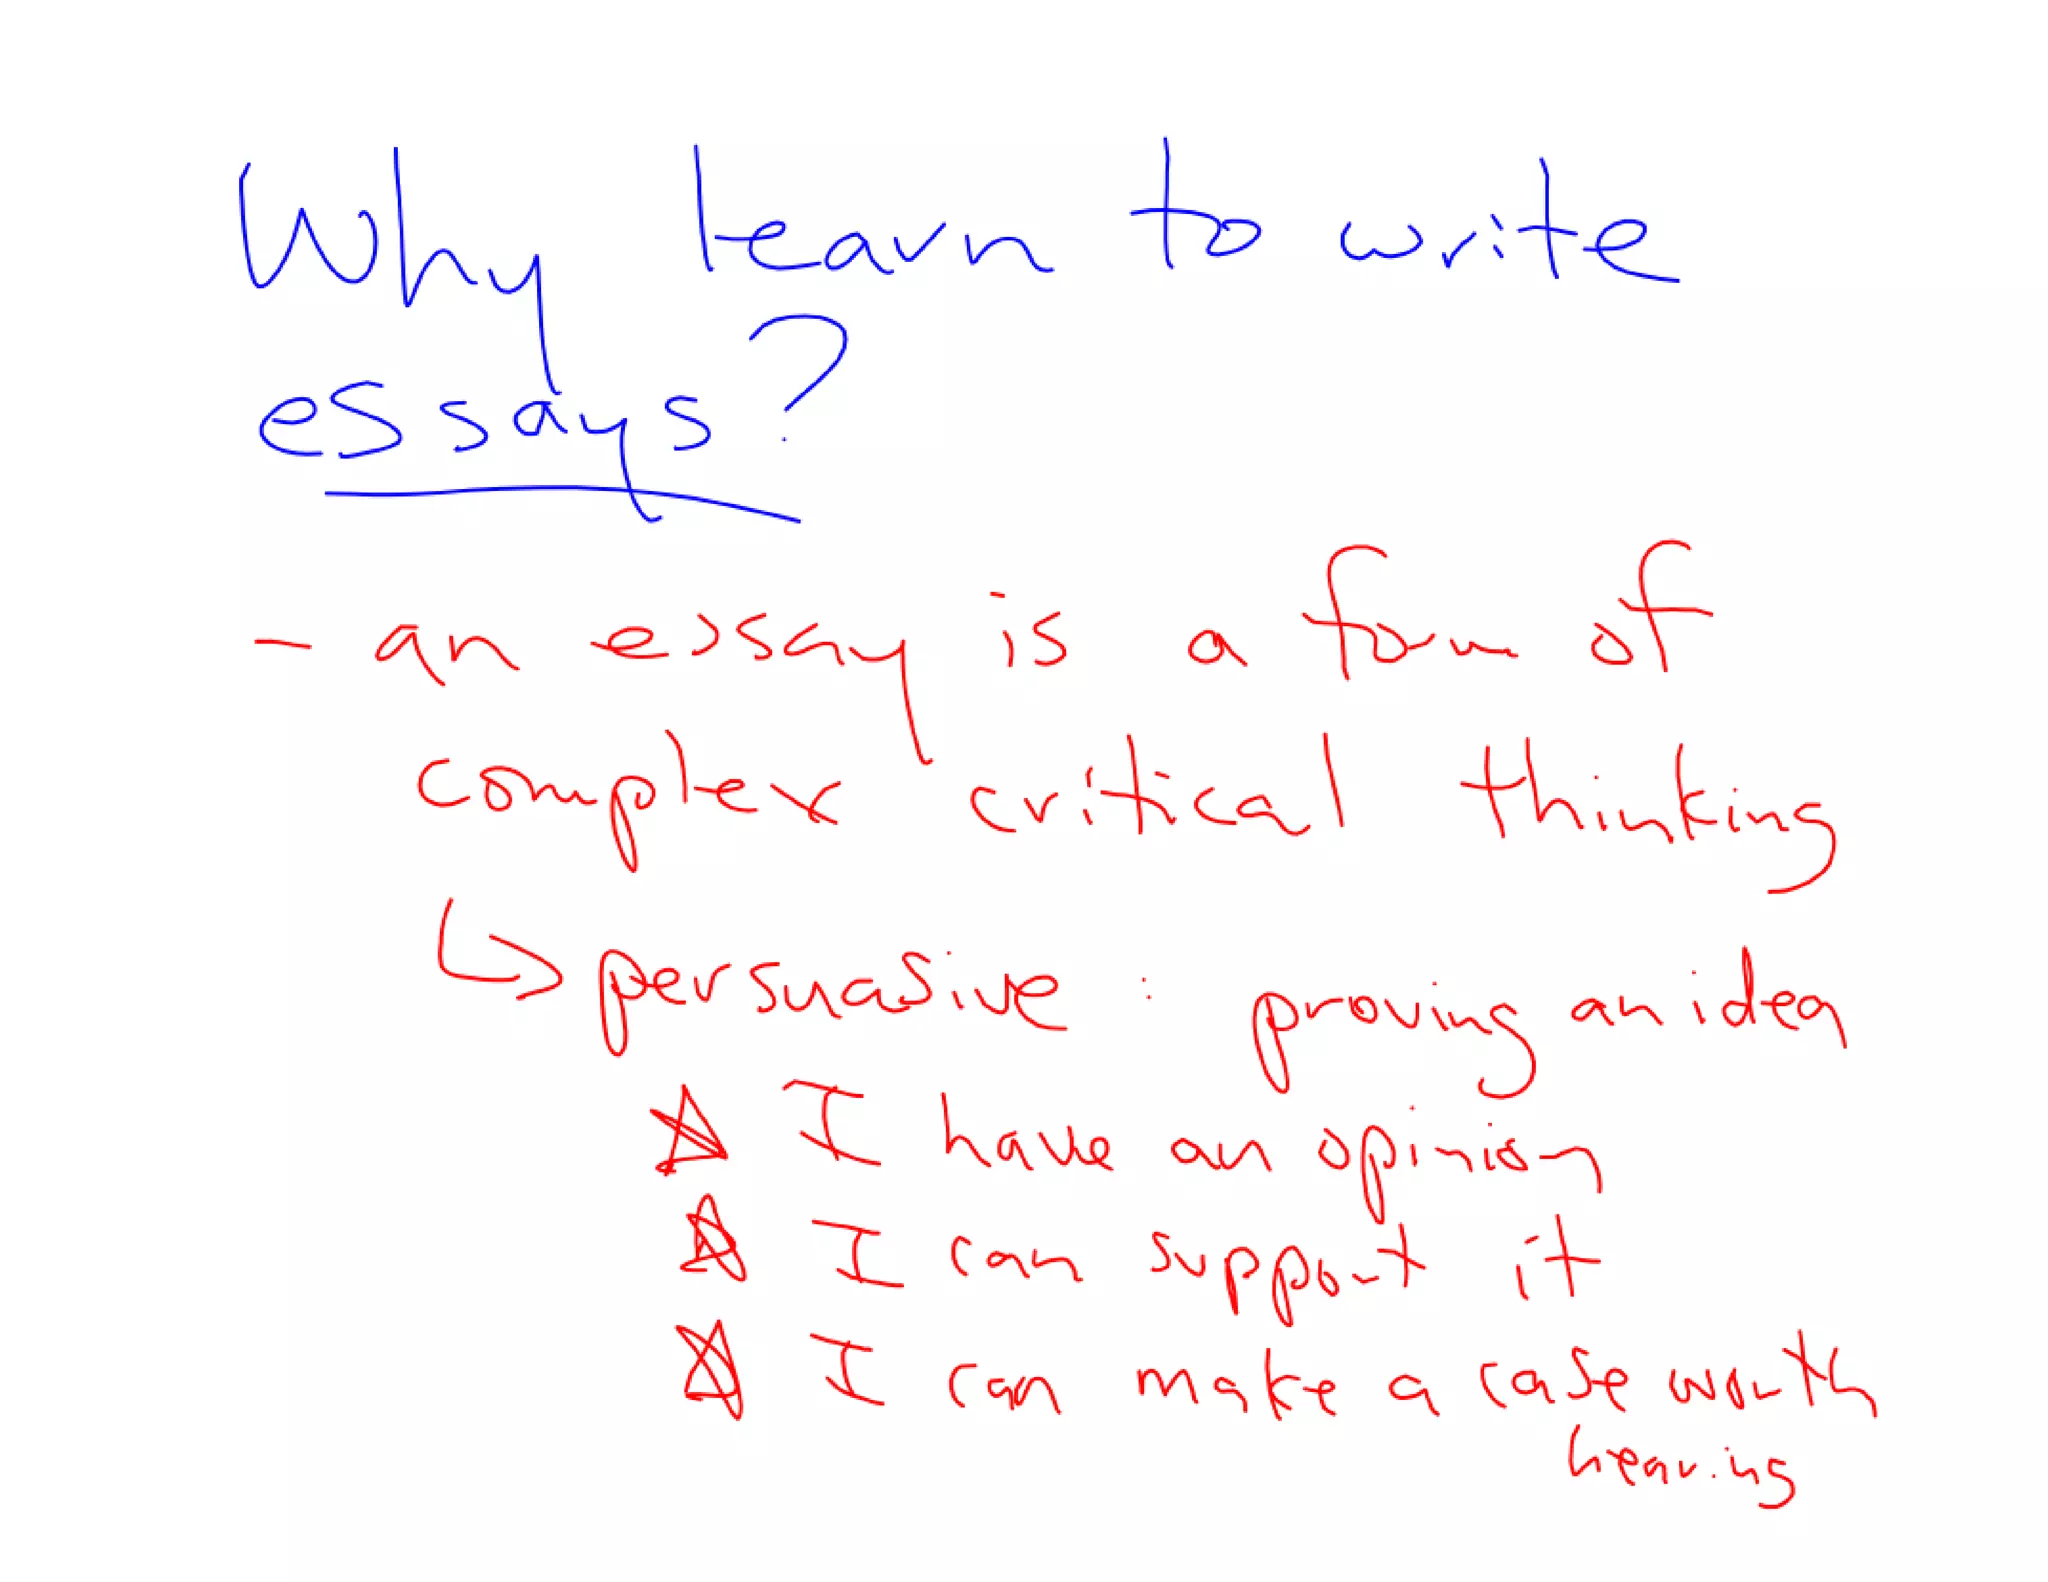 Why learn to write
essays?
- an essay is a form of
complex critical thinking
↳ persuasive : proving an idea
☆ I have an opinion
☆ I can support it
☆ I can make a case worth
hearing